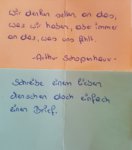 Wir denken selten an das,
was wir haben, aber immer
an das, was uns fehlt.
- Arthur Schopenhauer -
Schreibe einem lieben
Menschen doch einfach
einen Brief.